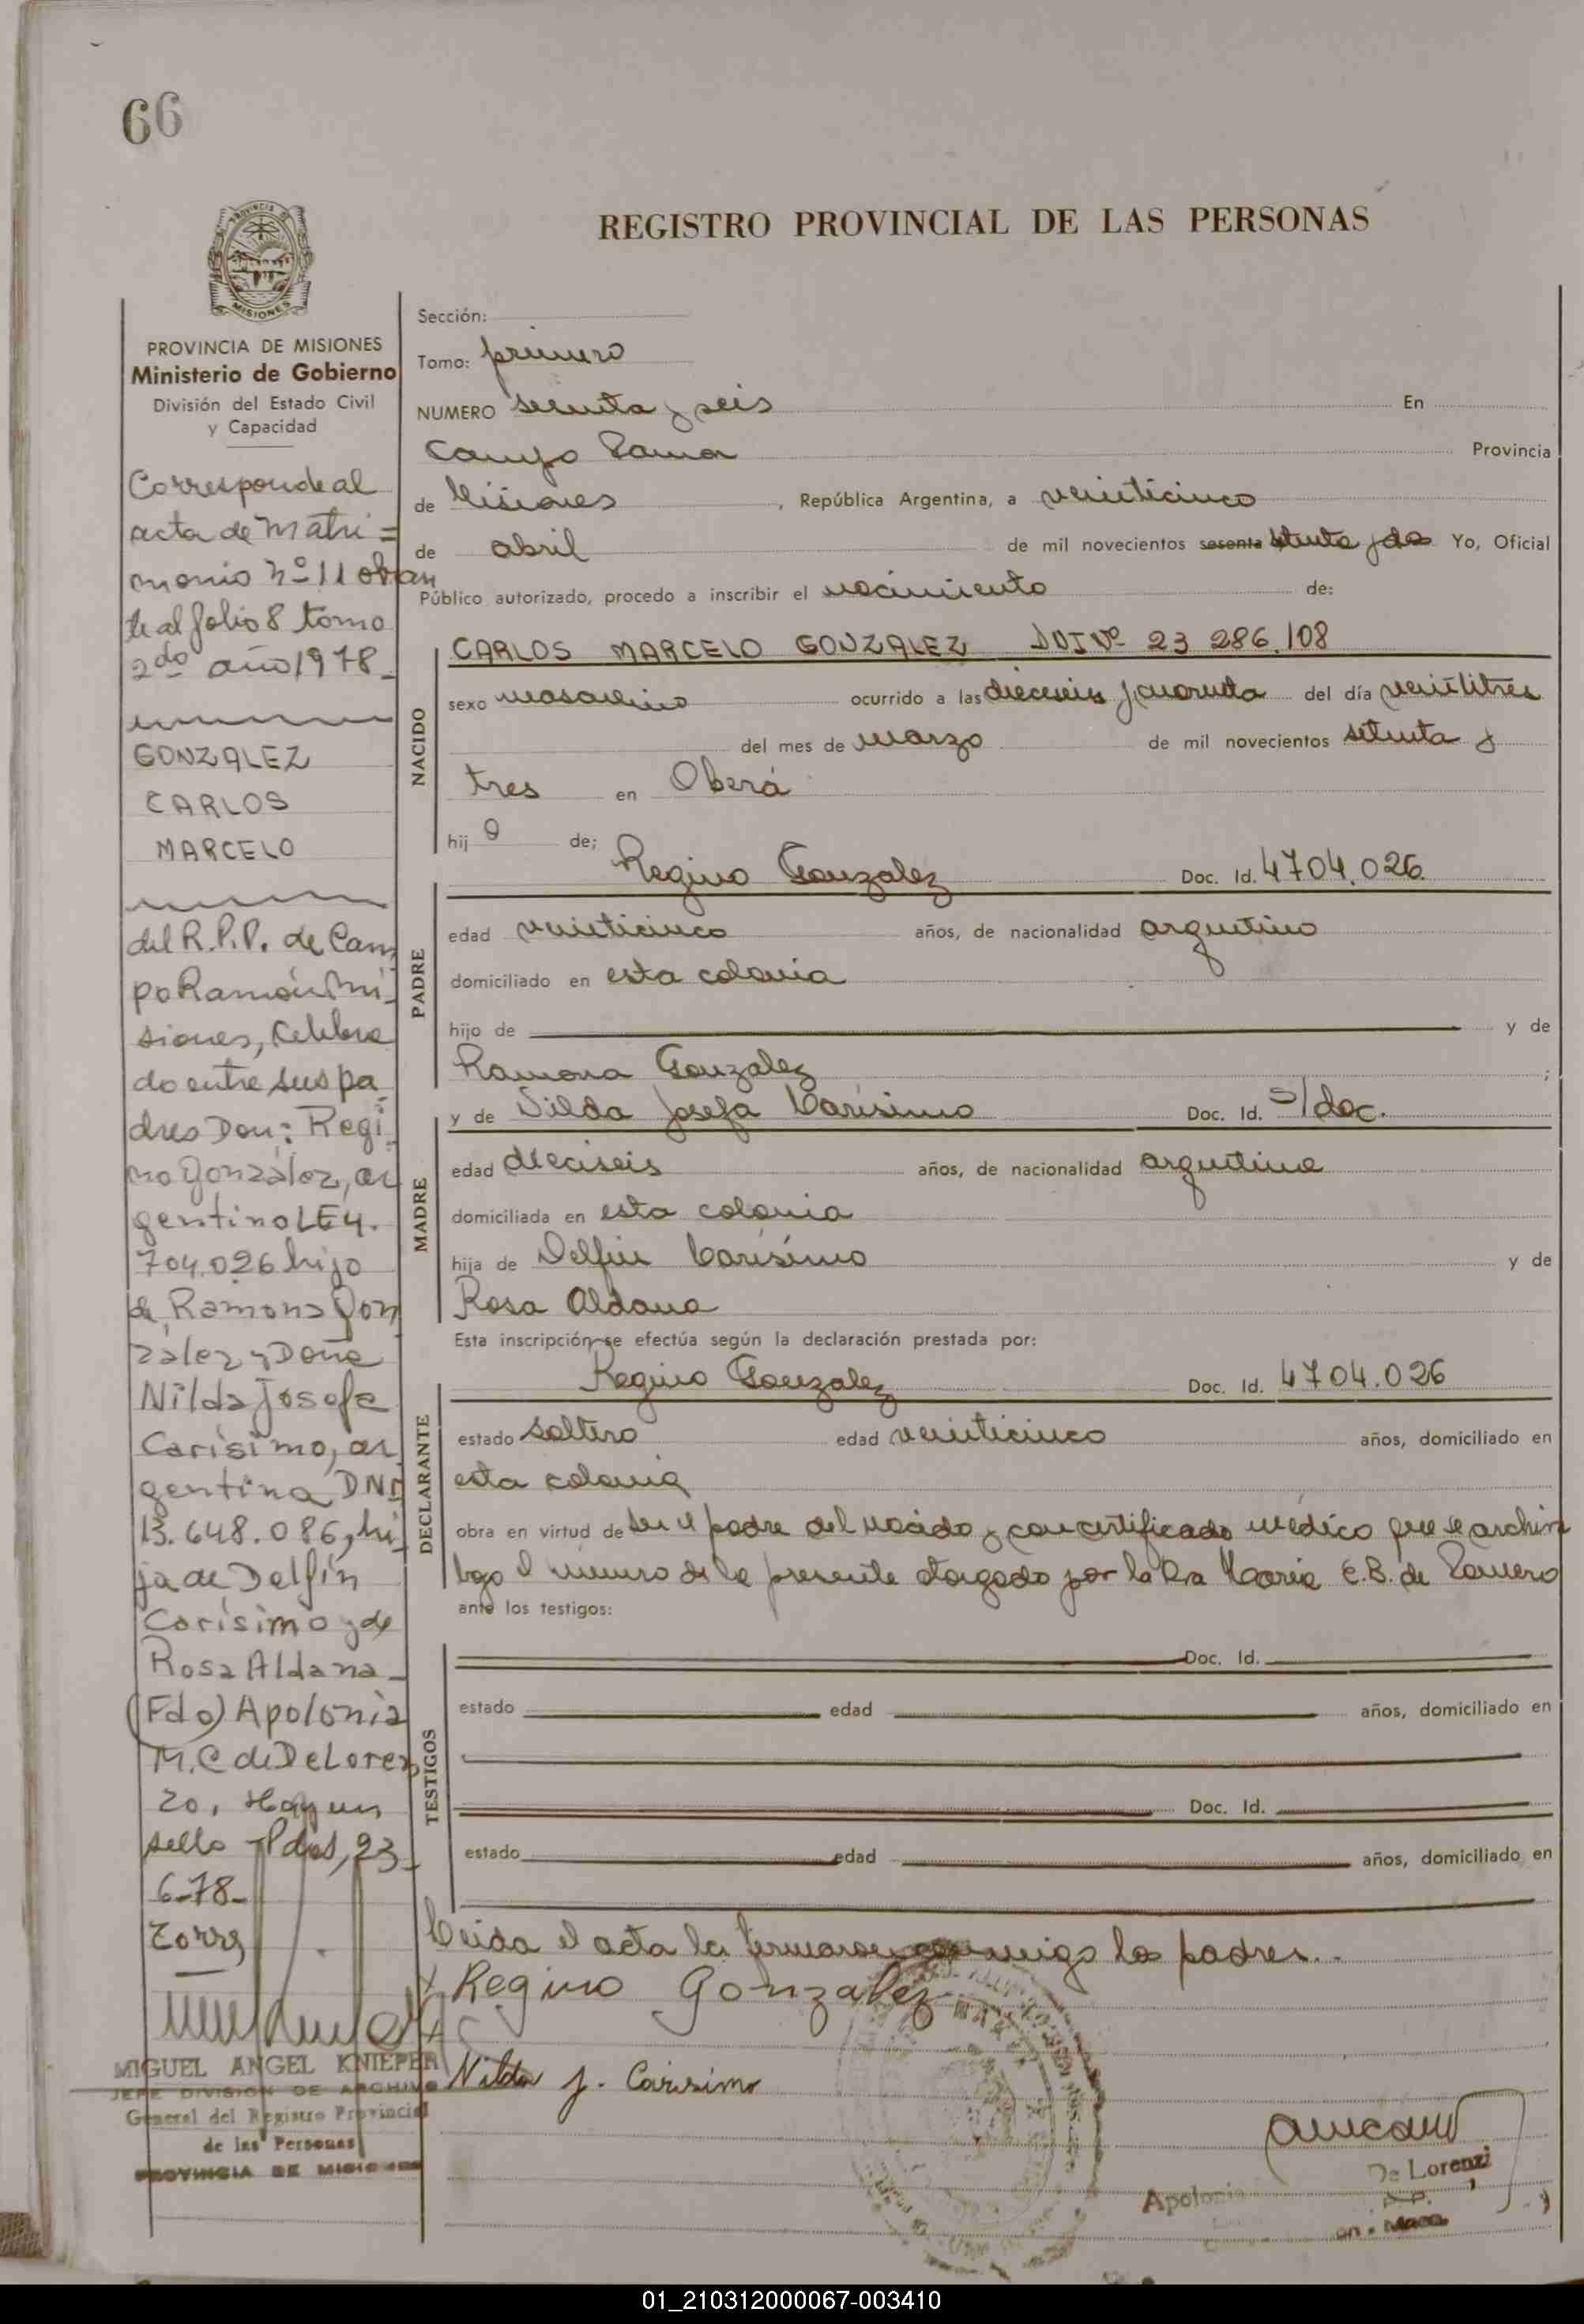 66
REGISTRO PROVINCIAL DE LAS PERSONAS
PROVINCIA DE MISIONES
Ministerio de Gobierno
División del Estado Civil
y Capacidad
Corresponde al
acta de Matri=
monio nº 11 obran
te al folio 8 tomo
2do año 1978_
GONZALEZ
CARLOS
MARCELO
del R.P.P. de Cam
po Ramón Mi_
siones, Celebra
do entre sus pa_
dres Don: Regi_
no González, ar
gentino LE 4.
704.026 hijo
de Ramona Gon
zález y Doña
Nilda Josefa
Carísimo, ar
gentina DNI
13.648.086, hi_
ja de Delfín
Carísimo y de
Rosa Aldana_
(Fdo) Apolonia
M.C de DeLoren
zo, Hay un
sello -Pdas, 23_
6-78-
MIGUEL ANGEL KNIEPER
JEFE DIVISION DE ARCHIVO
General del Registro Provincial
de las Personas
PROVINCIA DE MISIONES
Sección:
Tomo: primero
NUMERO sesenta y seis En
Campo Ramon Provincia
de Misiones, República Argentina, a veinticinco
de abril de mil novecientos sesenta setenta y dos Yo, Oficial
Público autorizado, procedo a inscribir el nacimiento de:
CARLOS MARCELO GONZALEZ DNI Nº 23 286.108
NACIDO
sexo masculino ocurrido a las dieciseis y cuarenta del día veintitres
del mes de marzo de mil novecientos setenta y
tres en Oberá
hij o de;
PADRE
Regino Gonzalez Doc. Id. 4704.026
edad veinticinco años, de nacionalidad argentino
domiciliado en esta colonia
hijo de y de
Ramona Gonzalez;
MADRE
y de Nilda Josefa Carísimo Doc. Id. s/doc.
edad dieciseis años, de nacionalidad argentina
domiciliada en esta colonia
hija de Delfin Carísimo y de
Rosa Aldana
Esta inscripción se efectúa según la declaración prestada por:
DECLARANTE
Regino Gonzalez Doc. Id. 4704.026
estado soltero edad veinticinco años, domiciliado en
esta colonia
obra en virtud de ser el padre del nacido y con certificado médico que se archiva
bajo el número de la presente otorgado por la Dra María E.B. de Romero
ante los testigos:
TESTIGOS
Doc. Id.
estado edad años, domiciliado en
Doc. Id.
estado edad años, domiciliado en
Leida el acta la firmaron conmigo los padres..
Regino Gonzalez
Nilda J. Carisimo
De Lorenzi
Apolonia
01_210312000067-003410